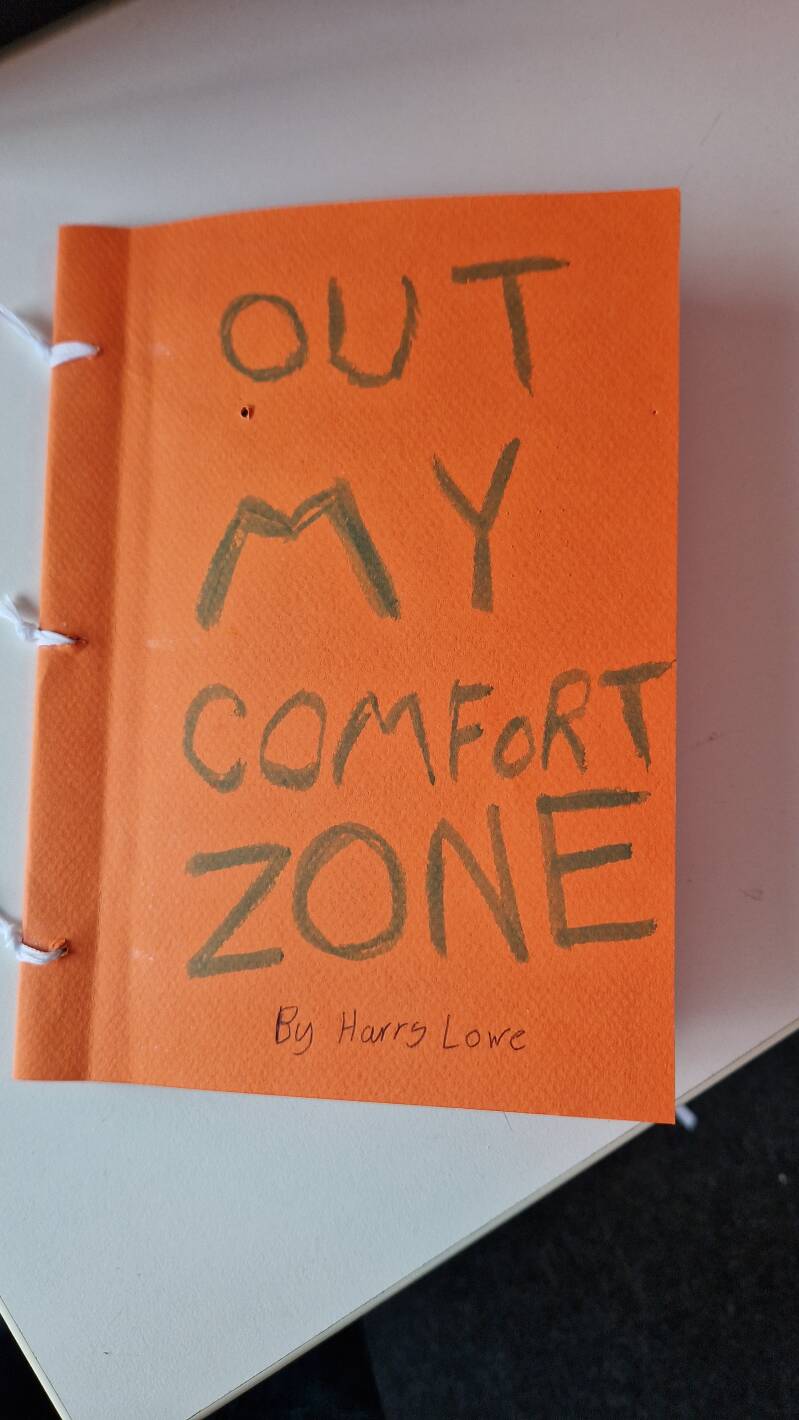 OUT
MY
COMFORT
ZONE
By Harry Lowe